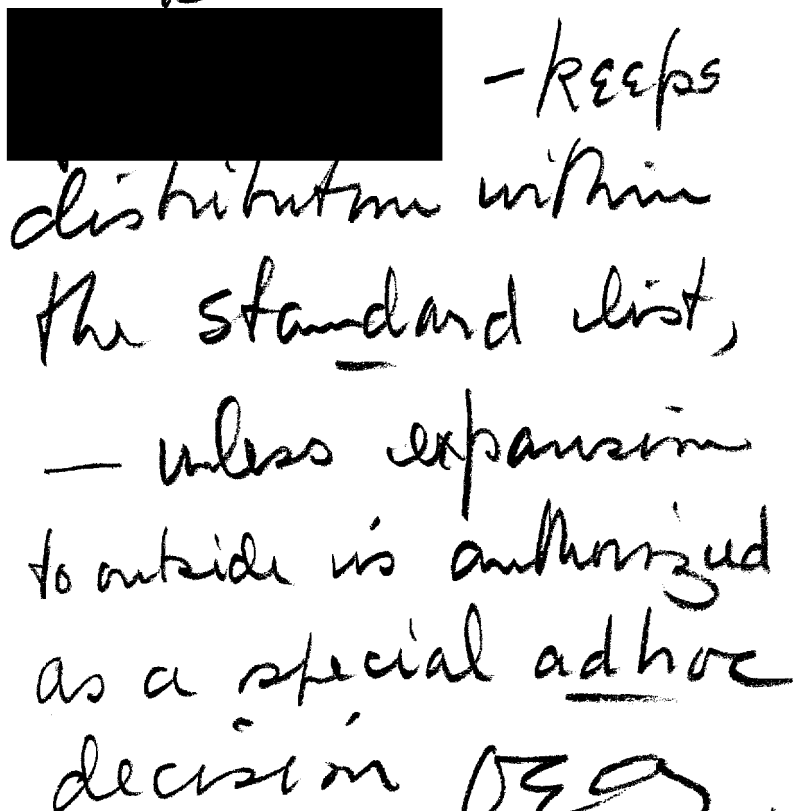 -keeps
distribution within
the standard list,
— unless expansion
to outside is authorized
as a special ad hoc
decision